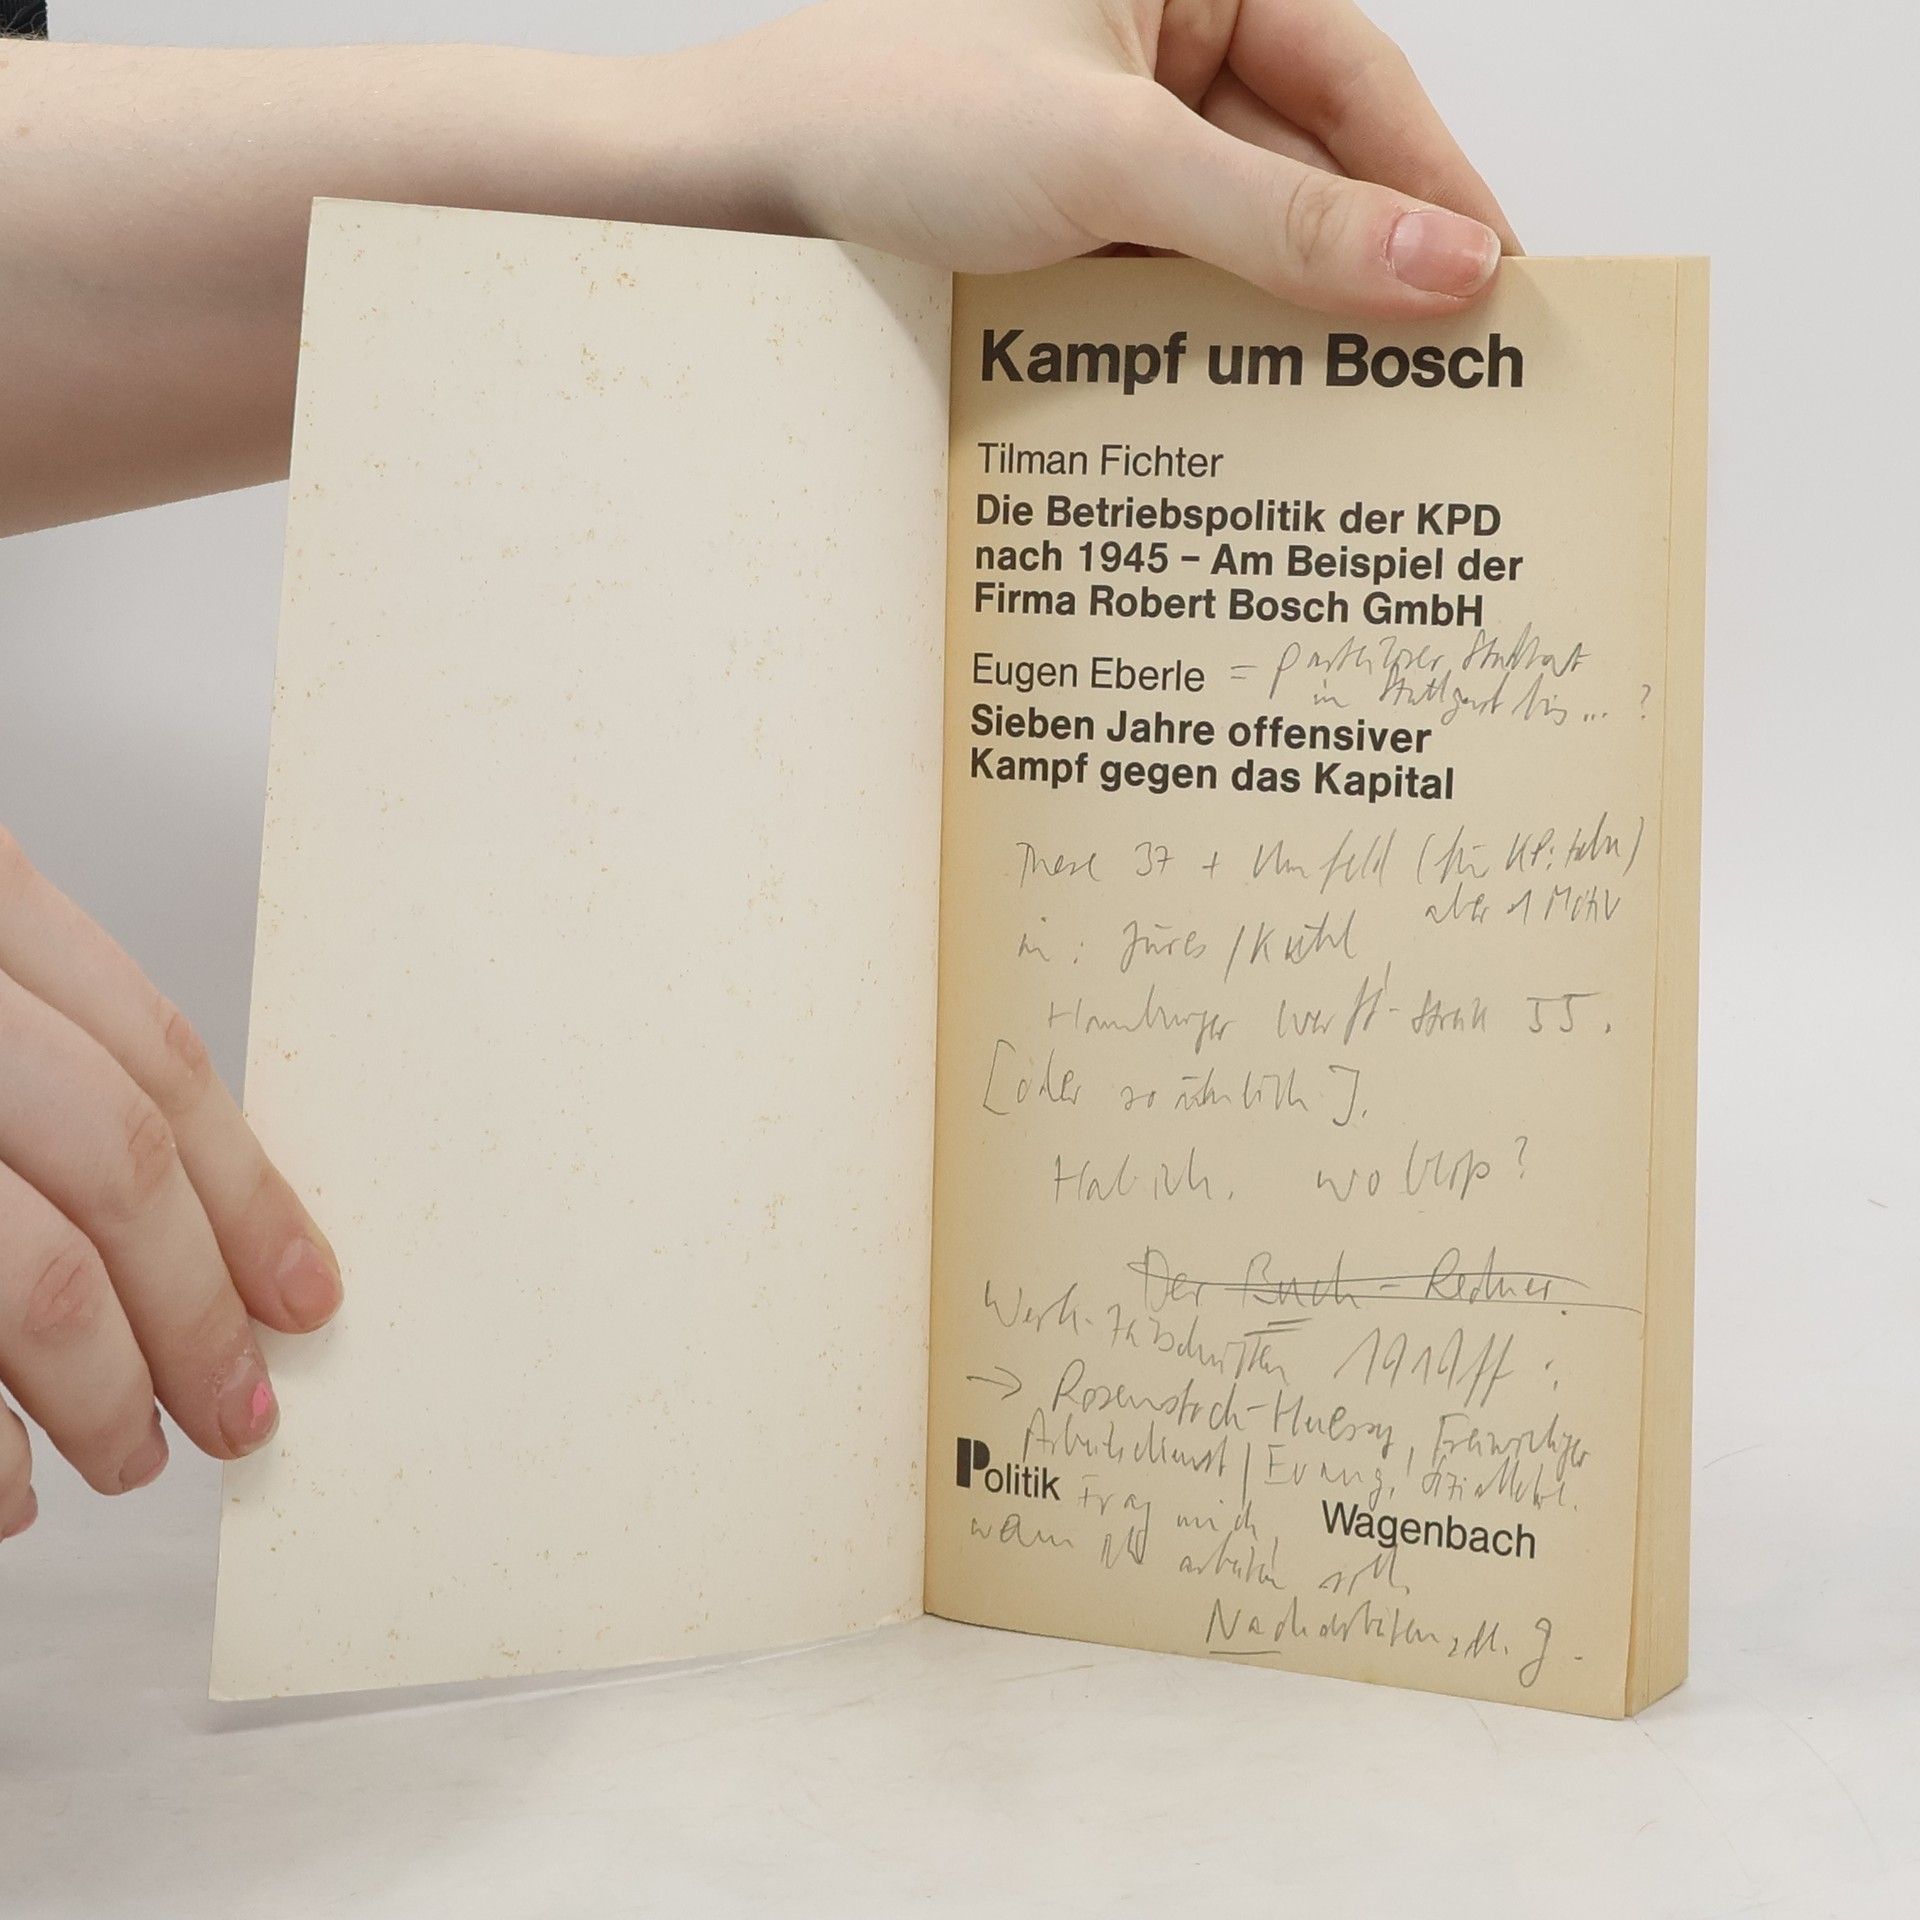 Kampf um Bosch
Tilman Fichter
Die Betriebspolitik der KPD
nach 1945 – Am Beispiel der
Firma Robert Bosch GmbH
Eugen Eberle = parteiloser Stadtrat
in Stuttgart bis ... ?
Sieben Jahre offensiver
Kampf gegen das Kapital
These 37 + Umfeld (für KP:
aber 1 Motiv
in: Jüres / Kuehl
Hamburger Werft- Streik 55.
[oder so ähnlich].
Hab ich. wo bloß?
Der Buch-Redner
Werk-Zeitschriften 1919 ff:
→ Rosenstock-Huessy, Freiwilliger
Arbeitsdienst / Evang.
Politik Frag mich, Wagenbach
wann ich arbeiten soll.
Nacharbeiten